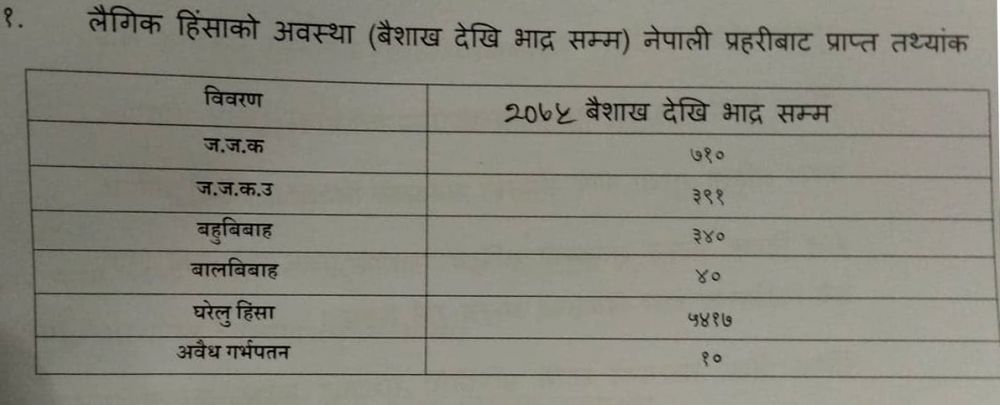 १. लैगिक हिंसाको अवस्था (बैशाख देखि भाद्र सम्म) नेपाली प्रहरीबाट प्राप्त तथ्यांक
विवरण २०७५ बैशाख देखि भाद्र सम्म
ज.ज.क ७१०
ज.ज.क.उ ३९१
बहुबिबाह ३४०
बालबिबाह ४०
घरेलु हिंसा ५४१७
अवैध गर्भपतन १०